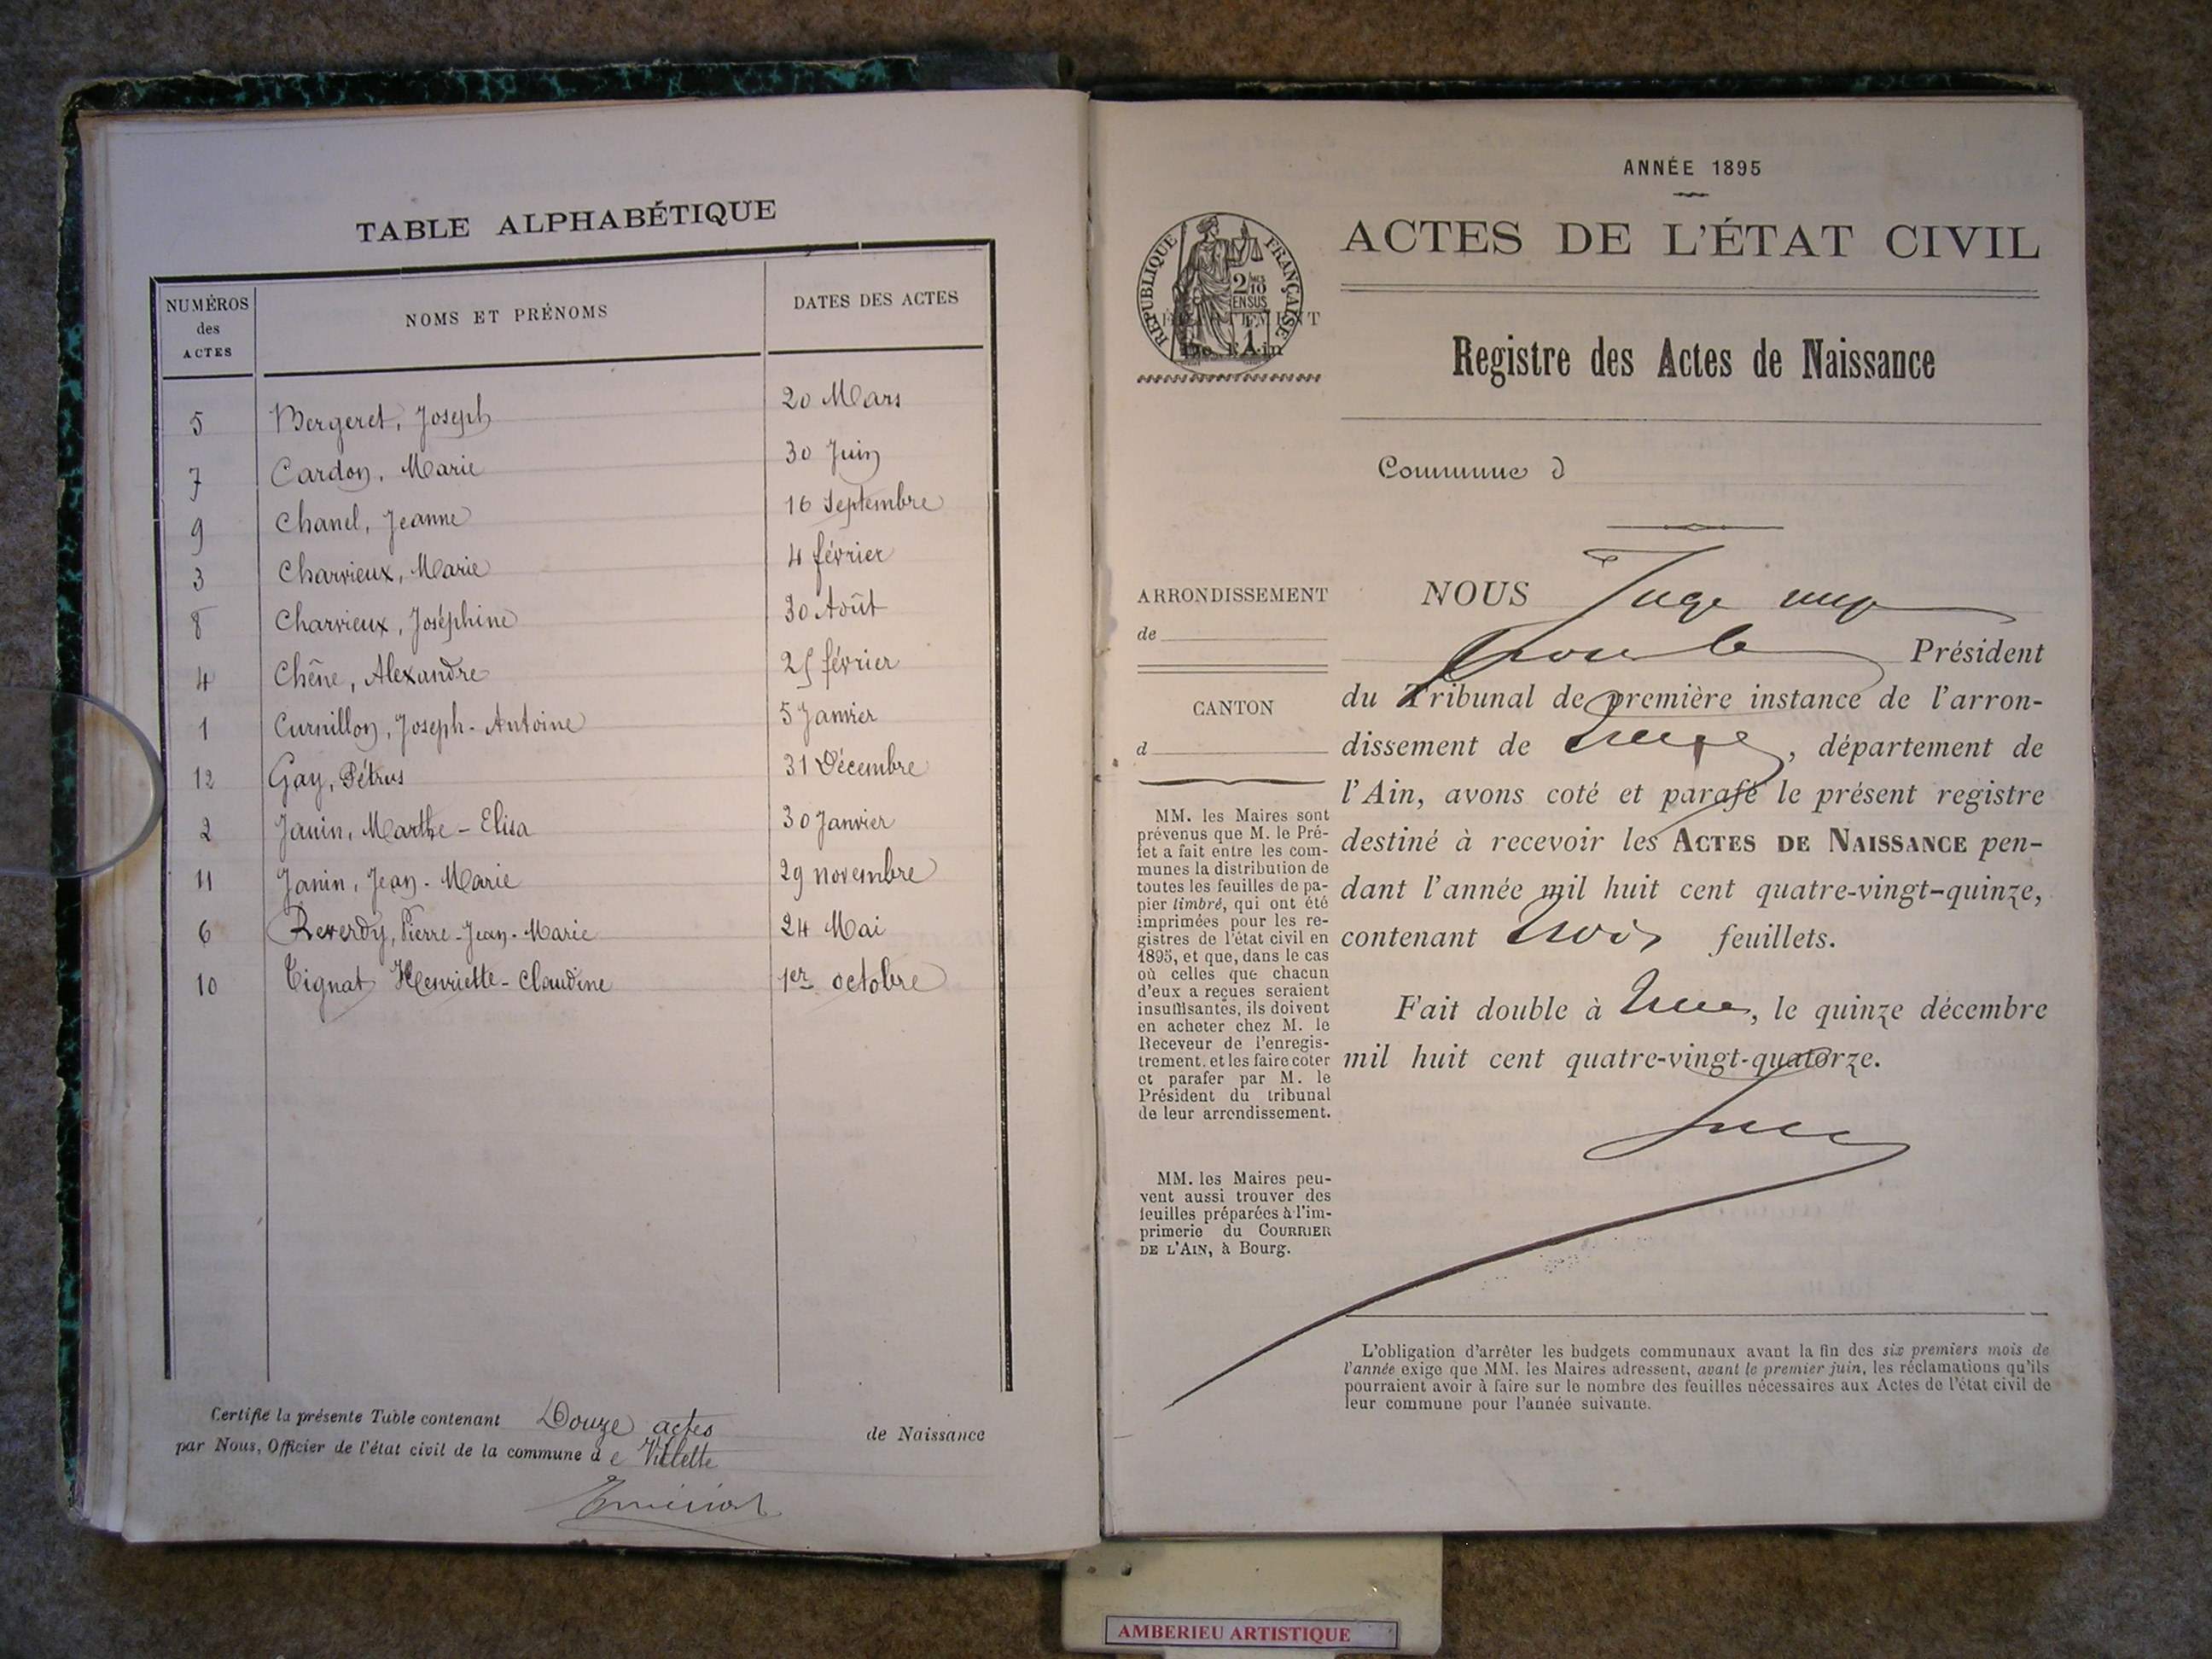 TABLE ALPHABÉTIQUE
NUMÉROS des ACTES NOMS ET PRÉNOMS DATES DES ACTES
5 Bergeret, Joseph 20 Mars
7 Cardon, Marie 30 Juin
9 Chanel, Jeanne 16 Septembre
3 Charvieux, Marie 4 février
8 Charvieux, Joséphine 30 Août
4 Chêne, Alexandre 25 février
1 Curnillon, Joseph-Antoine 5 Janvier
12 Gay, Pétrus 31 Décembre
2 Janin, Marthe-Elisa 30 Janvier
11 Janin, Jean-Marie 29 novembre
6 Reverdy, Pierre-Jean-Marie 24 Mai
10 Tignat Henriette-Claudine 1er octobre
Certifié la présente Table contenant Douze actes de Naissance
par Nous, Officier de l'état civil de la commune de Villette
ANNÉE 1895
ACTES DE L'ÉTAT CIVIL
RÉPUBLIQUE FRANÇAISE
2/10 EN SUS
De l'Ain
Registre des Actes de Naissance
Commune d
ARRONDISSEMENT
de
CANTON
d
MM. les Maires sont
prévenus que M. le Pré-
fet a fait entre les com-
munes la distribution de
toutes les feuilles de pa-
pier timbré, qui ont été
imprimées pour les re-
gistres de l'état civil en
1895, et que, dans le cas
où celles que chacun
d'eux a reçues seraient
insuffisantes, ils doivent
en acheter chez M. le
Receveur de l'enregis-
trement, et les faire coter
et parafer par M. le
Président du tribunal
de leur arrondissement.
MM. les Maires peu-
vent aussi trouver des
feuilles préparées à l'im-
primerie du COURRIER
DE L'AIN, à Bourg.
NOUS Juge
pour le Président
du Tribunal de première instance de l'arron-
dissement de , département de
l'Ain, avons coté et parafé le présent registre
destiné à recevoir les ACTES DE NAISSANCE pen-
dant l'année mil huit cent quatre-vingt-quinze,
contenant trois feuillets.
Fait double à , le quinze décembre
mil huit cent quatre-vingt-quatorze.
L'obligation d'arrêter les budgets communaux avant la fin des six premiers mois de
l'année exige que MM. les Maires adressent, avant le premier juin, les réclamations qu'ils
pourraient avoir à faire sur le nombre des feuilles nécessaires aux Actes de l'état civil de
leur commune pour l'année suivante.
AMBERIEU ARTISTIQUE